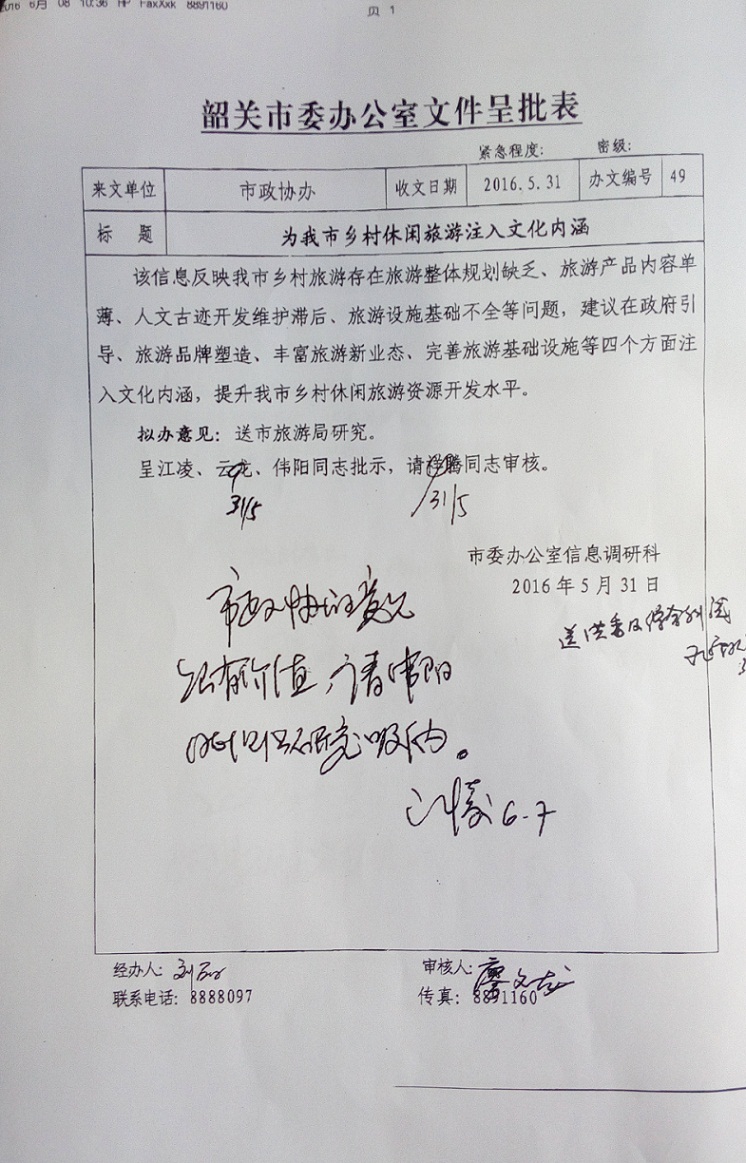 2016 6月 08 10:36 HP FaxXxk 8891160
页 1
韶关市委办公室文件呈批表
紧急程度： 密级：
来文单位 市政协办 收文日期 2016.5.31 办文编号 49
标 题 为我市乡村休闲旅游注入文化内涵
该信息反映我市乡村旅游存在旅游整体规划缺乏、旅游产品内容单
薄、人文古迹开发维护滞后、旅游设施基础不全等问题，建议在政府引
导、旅游品牌塑造、丰富旅游新业态、完善旅游基础设施等四个方面注
入文化内涵，提升我市乡村休闲旅游资源开发水平。
拟办意见：送市旅游局研究。
呈江凌、云龙、伟阳同志批示，请 同志审核。
31/5 31/5
市委办公室信息调研科
2016年5月31日
市政协的意见
有价值，请伟阳
研究吸纳。
江凌 6.7
经办人： 审核人：廖文
联系电话：8888097 传真：8891160